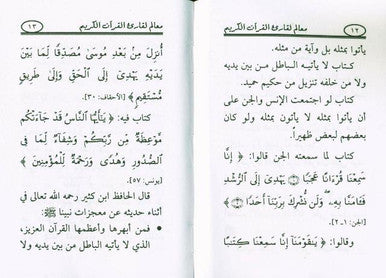 معالم لقارئ القرآن الكريم
١٢
يأتوا بمثله بل وآية من مثله.
كتاب لا يأتيه الباطل من بين يديه
ولا من خلفه تنزيل من حكيم حميد.
كتاب لو اجتمعت الإنس والجن على
أن يأتوا بمثله لا يأتون بمثله ولو كان
بعضهم لبعض ظهيراً.
كتاب لما سمعته الجن قالوا: ﴿ إِنَّا
سَمِعْنَا قُرْءَانًا عَجَبًا ۝١ يَهْدِىٓ إِلَى ٱلرُّشْدِ
فَـَٔامَنَّا بِهِۦ وَلَن نُّشْرِكَ بِرَبِّنَآ أَحَدًا ۝٢ ﴾
[الجن: ١ـ٢].
وقالوا: ﴿ يَٰقَوْمَنَآ إِنَّا سَمِعْنَا كِتَٰبًا
معالم لقارئ القرآن الكريم
١٣
أُنزِلَ مِنۢ بَعْدِ مُوسَىٰ مُصَدِّقًا لِّمَا بَيْنَ
يَدَيْهِ يَهْدِىٓ إِلَى ٱلْحَقِّ وَإِلَىٰ طَرِيقٍ
مُّسْتَقِيمٍ ﴾ [الأحقاف: ٣٠].
كتاب فيه: ﴿ يَٰٓأَيُّهَا ٱلنَّاسُ قَدْ جَآءَتْكُم
مَّوْعِظَةٌ مِّن رَّبِّكُمْ وَشِفَآءٌ لِّمَا فِى
ٱلصُّدُورِ وَهُدًى وَرَحْمَةٌ لِّلْمُؤْمِنِينَ ﴾
[يونس: ٥٧].
قال الحافظ ابن كثير رحمه الله تعالى في
أثناء حديثه عن معجزات نبينا ﷺ:
• فمن أبهرها وأعظمها القرآن العزيز،
الذي لا يأتيه الباطل من بين يديه ولا